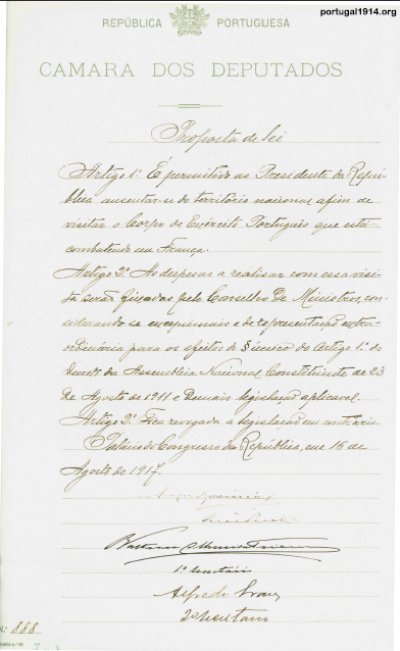 portugal1914.org
REPÚBLICA PORTUGUESA
CAMARA DOS DEPUTADOS
Proposta de lei
Artigo 1º É permitido ao Presidente da Repú-
blica ausentar-se do territorio nacional afim de
visitar o Corpo de Exército Português que está
combatendo em França.
Artigo 2º As despesas a realisar com essa visi-
ta serão fixadas pelo Conselho de Ministros, con-
siderando-se e de representação extra-
ordinária para os efeitos do § único do Artigo 1º do
Decreto da Assembleia Nacional Constituinte de 23
de Agosto de 1911 e demais legislação aplicavel.
Artigo 3º Fica revogada a legislação em contrário.
Palacio do Congresso da República, em 16 de
Agosto de 1917.
1º Secretario
Alfredo
2º Secretario
888